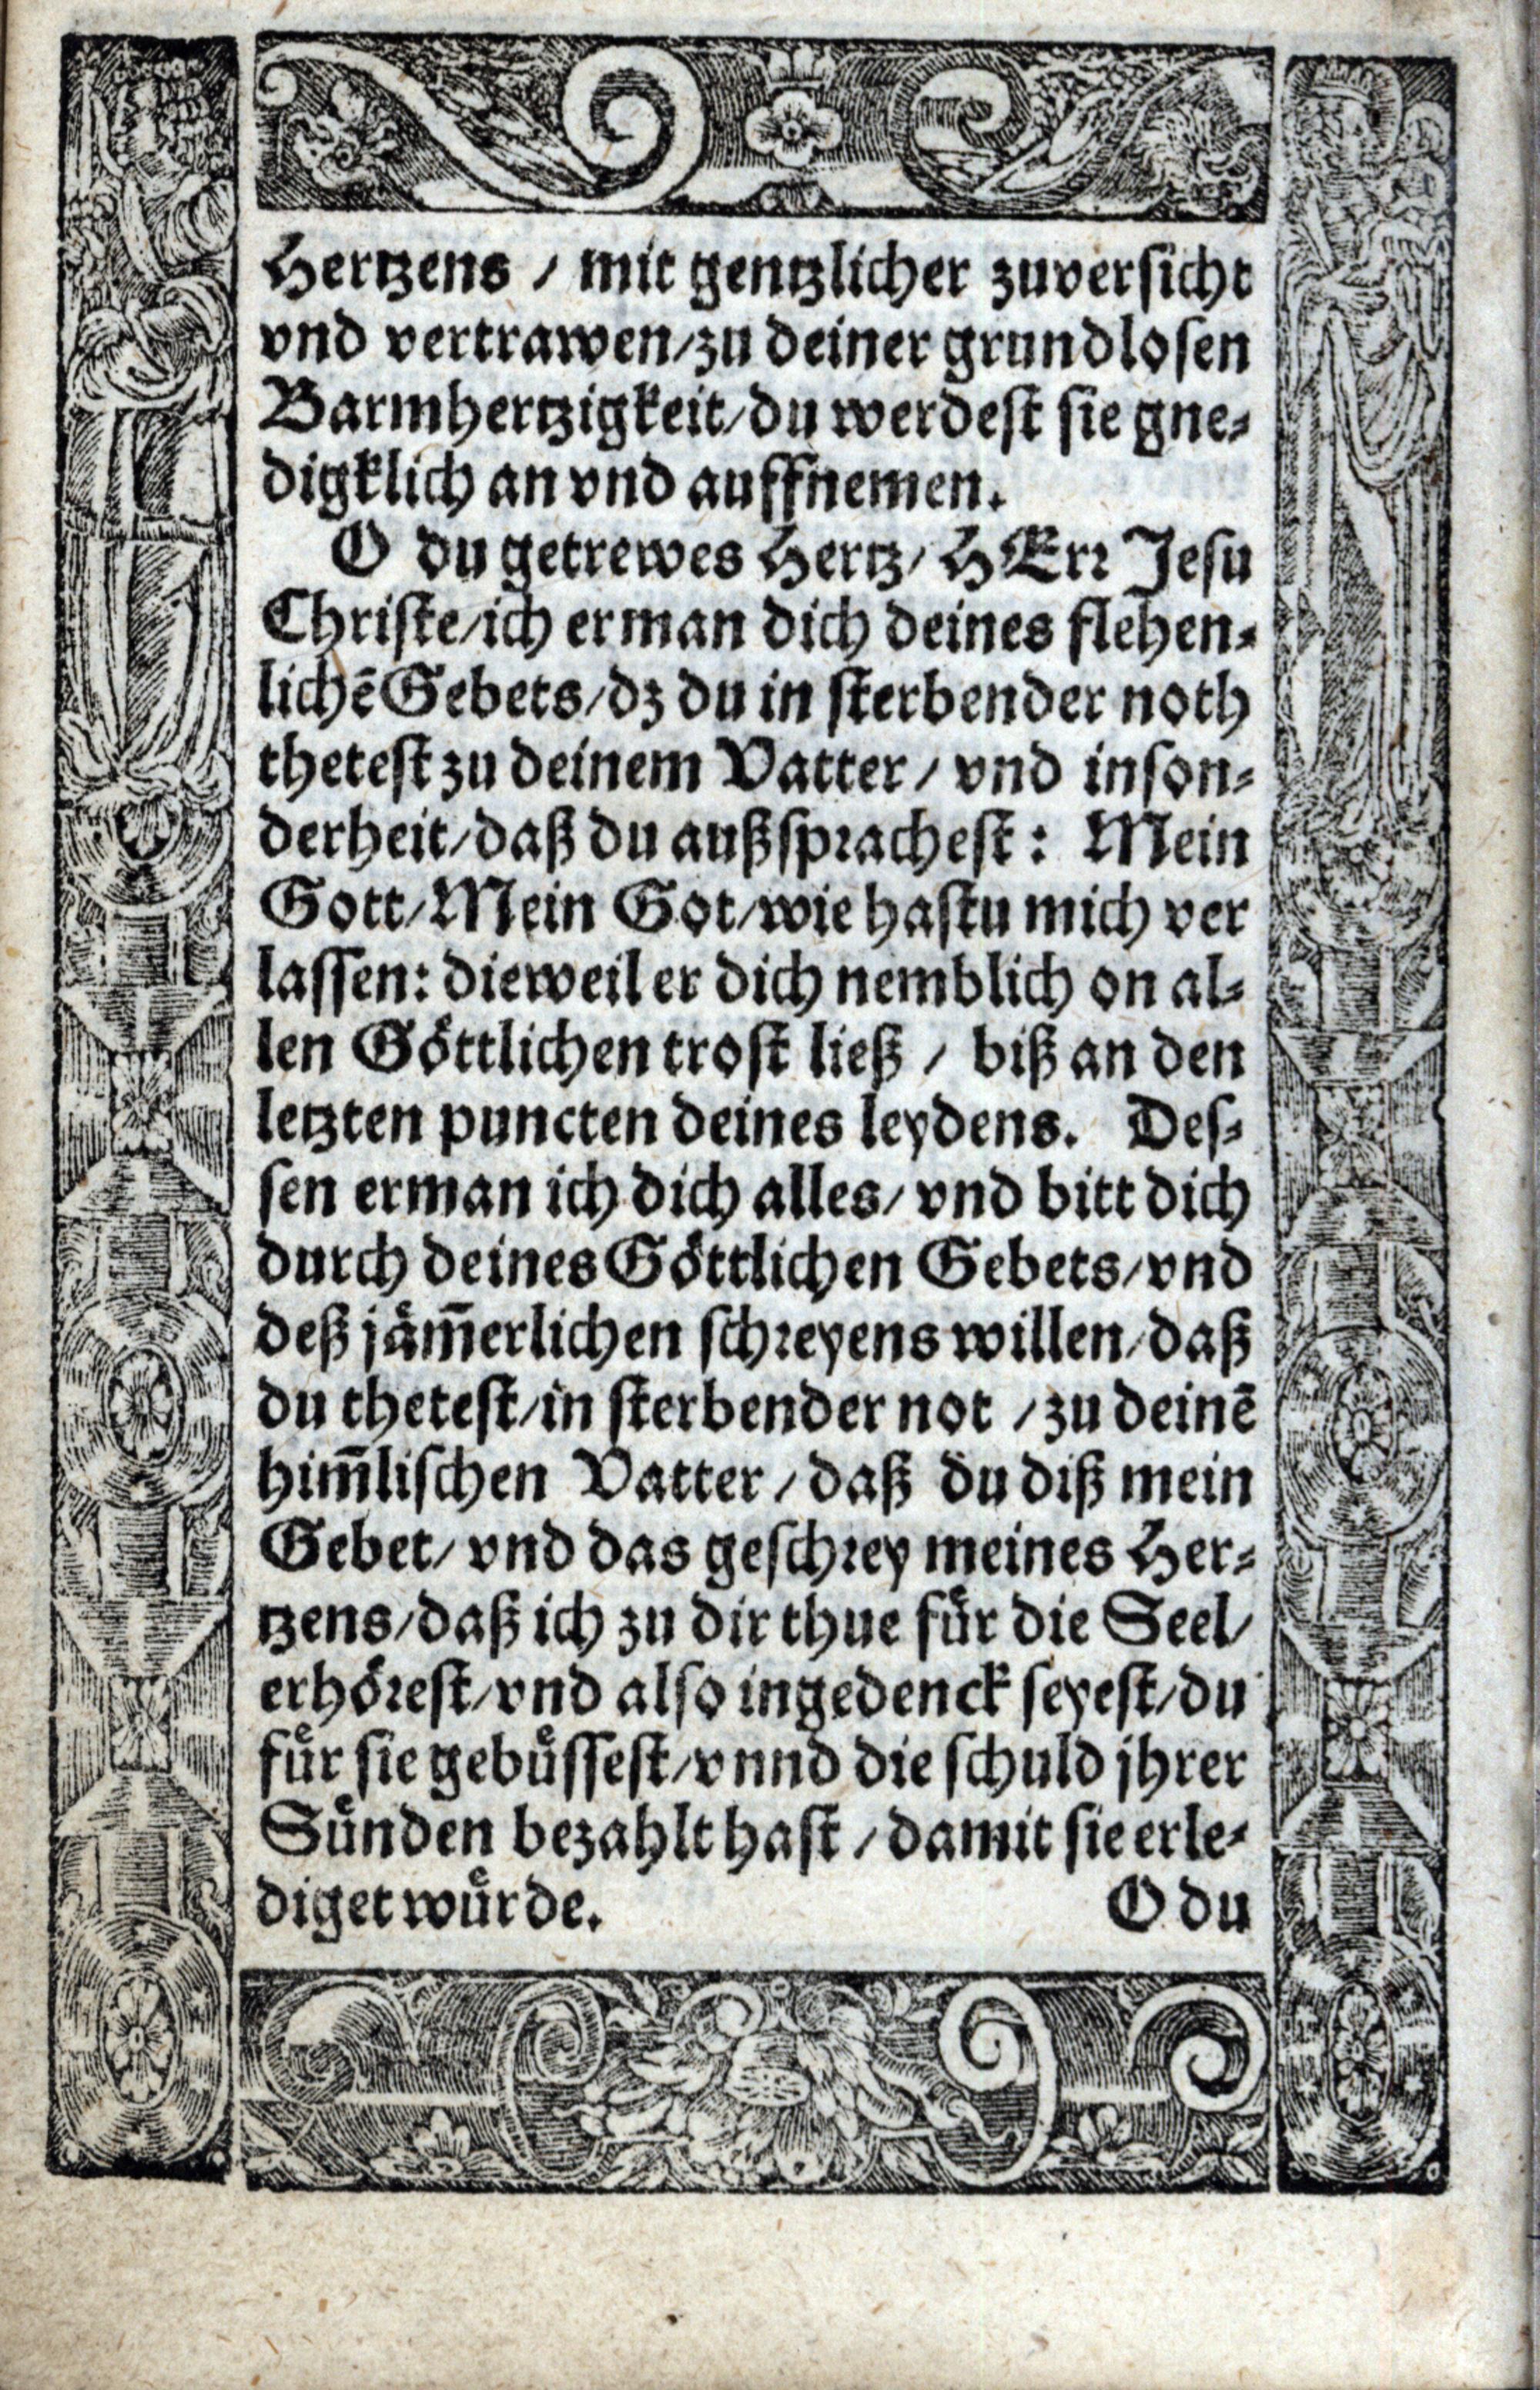 Hertzens / mit gentzlicher zuversicht
vnd vertrawen/zu deiner grundlosen
Barmhertzigkeit/du werdest sie gne⸗
digklich an vnd auffnemen.
O du getrewes Hertz/ HErꝛ Jesu
Christe/ich erman dich deines flehen⸗
lichē Gebets/dz du in sterbender noth
thetest zu deinem Vatter / vnd inson⸗
derheit/daß du außspꝛachest: Mein
Gott/Mein Got/wie hastu mich ver
lassen: dieweil er dich nemblich on al⸗
len Göttlichen trost ließ / biß an den
letzten puncten deines leydens. Des⸗
sen erman ich dich alles/ vnd bitt dich
durch deines Göttlichen Gebets/vnd
deß jäm̄erlichen schꝛeyens willen/daß
du thetest/in sterbender not /zu deinē
him̄lischen Vatter / daß du diß mein
Gebet/ vnd das geschꝛey meines Her⸗
tzens/daß ich zu dir thue für die Seel/
erhöꝛest/vnd also ingedenck seyest/du
für sie gebüssest/vnnd die schuld jhrer
Sünden bezahlt hast /damit sie erle⸗
diget würde. O du